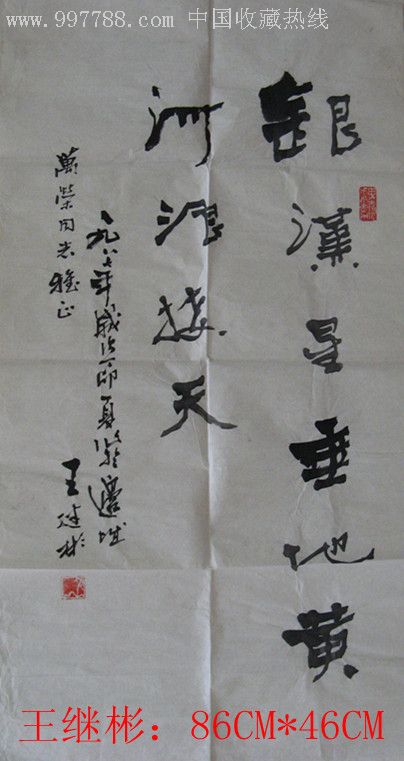 www.997788.com 中国收藏热线
銀漢星垂地黄
河浪接天
萬榮同志雅正
一九八七年歲次丁卯夏於邊城
王继彬
王继彬：86CM*46CM